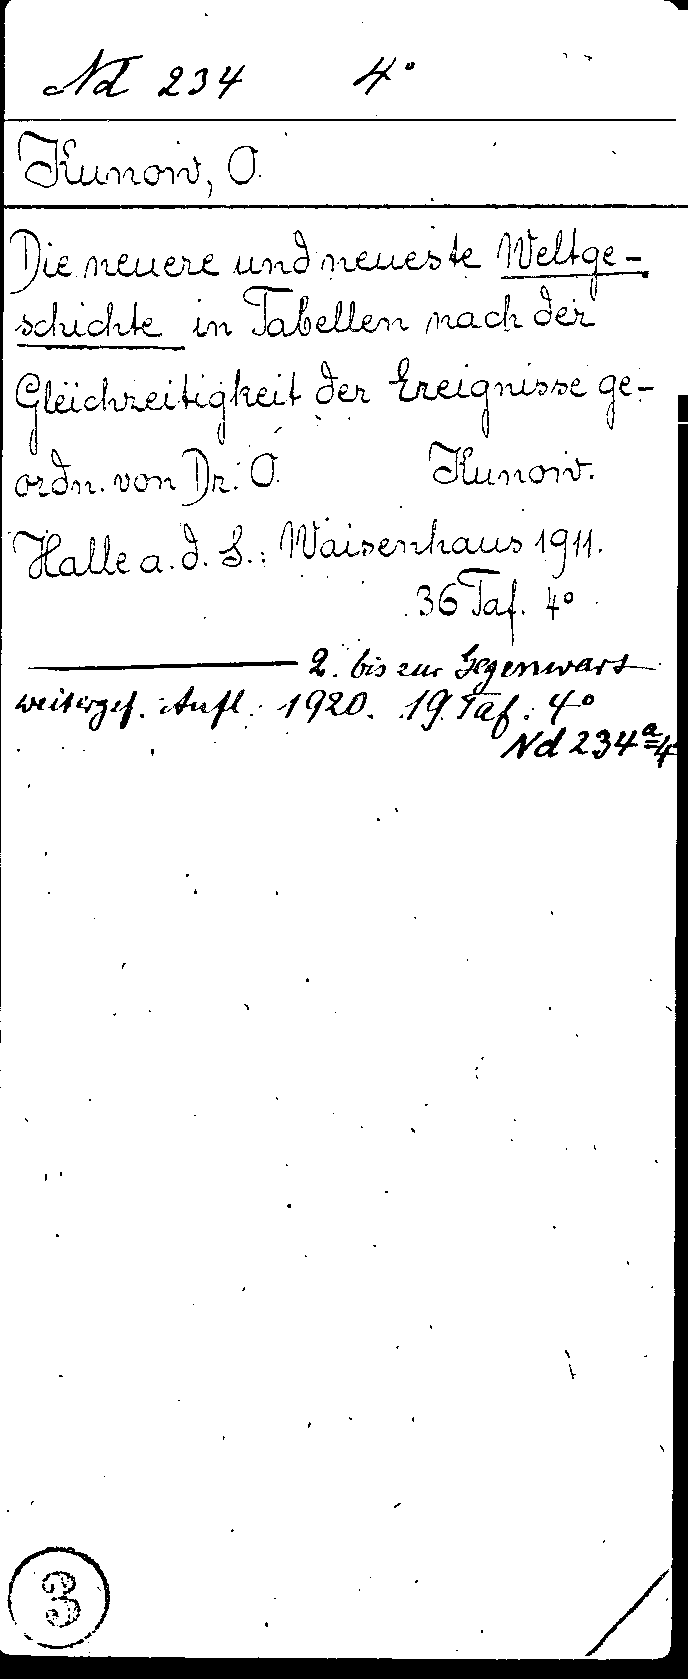 Nd 234 4°
Kunow, O.
Die neuere und neueste Weltge-
schichte in Tabellen nach der
Gleichzeitigkeit der Ereignisse ge-
ordn. von Dr. O. Kunow.
Halle a. d. S.: Waisenhaus 1911.
36 Taf. 4°
2. bis zur Gegenwart
weitergef. Aufl. 1920. 19 Taf. 4°
Nd 234ª 4
3